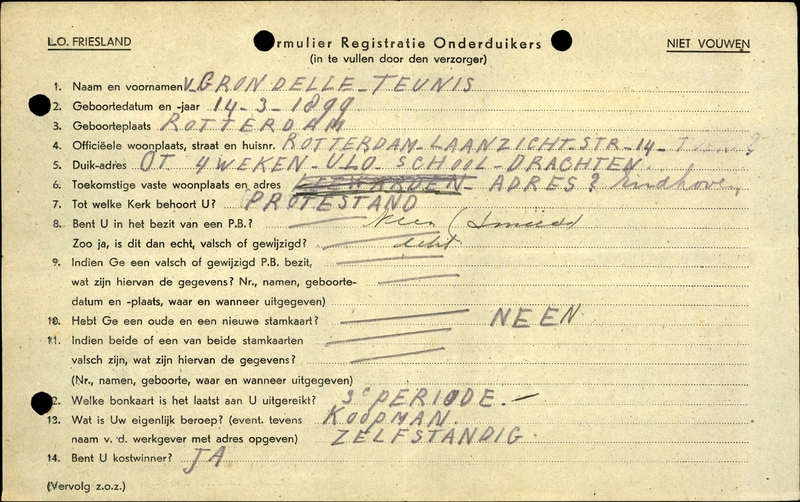 L.O. FRIESLAND
rmulier Registratie Onderduikers
NIET VOUWEN
(in te vullen door den verzorger)
1. Naam en voornamen v. GRONDELLE-TEUNIS
2. Geboortedatum en -jaar 14-3-1899
3. Geboorteplaats ROTTERDAM
4. Officiëele woonplaats, straat en huisnr. ROTTERDAM-LAANZICHT-STR-14-
5. Duik-adres OT. 4 WEKEN-ULO. SCHOOL-DRACHTEN.
6. Toekomstige vaste woonplaats en adres LEEWARDEN- ADRES? Eindhoven
7. Tot welke Kerk behoort U? PROTESTAND
8. Bent U in het bezit van een P.B.? Neen
Zoo ja, is dit dan echt, valsch of gewijzigd? echt
9. Indien Ge een valsch of gewijzigd P.B. bezit,
wat zijn hiervan de gegevens? Nr., namen, geboorte-
datum en -plaats, waar en wanneer uitgegeven)
10. Hebt Ge een oude en een nieuwe stamkaart? NEEN
11. Indien beide of een van beide stamkaarten
valsch zijn, wat zijn hiervan de gegevens?
(Nr., namen, geboorte, waar en wanneer uitgegeven)
2. Welke bonkaart is het laatst aan U uitgereikt? 3e PERIODE.-
13. Wat is Uw eigenlijk beroep? (event. tevens KOOPMAN.
naam v. d. werkgever met adres opgeven) ZELFSTANDIG.
14. Bent U kostwinner? JA
(Vervolg z.o.z.)